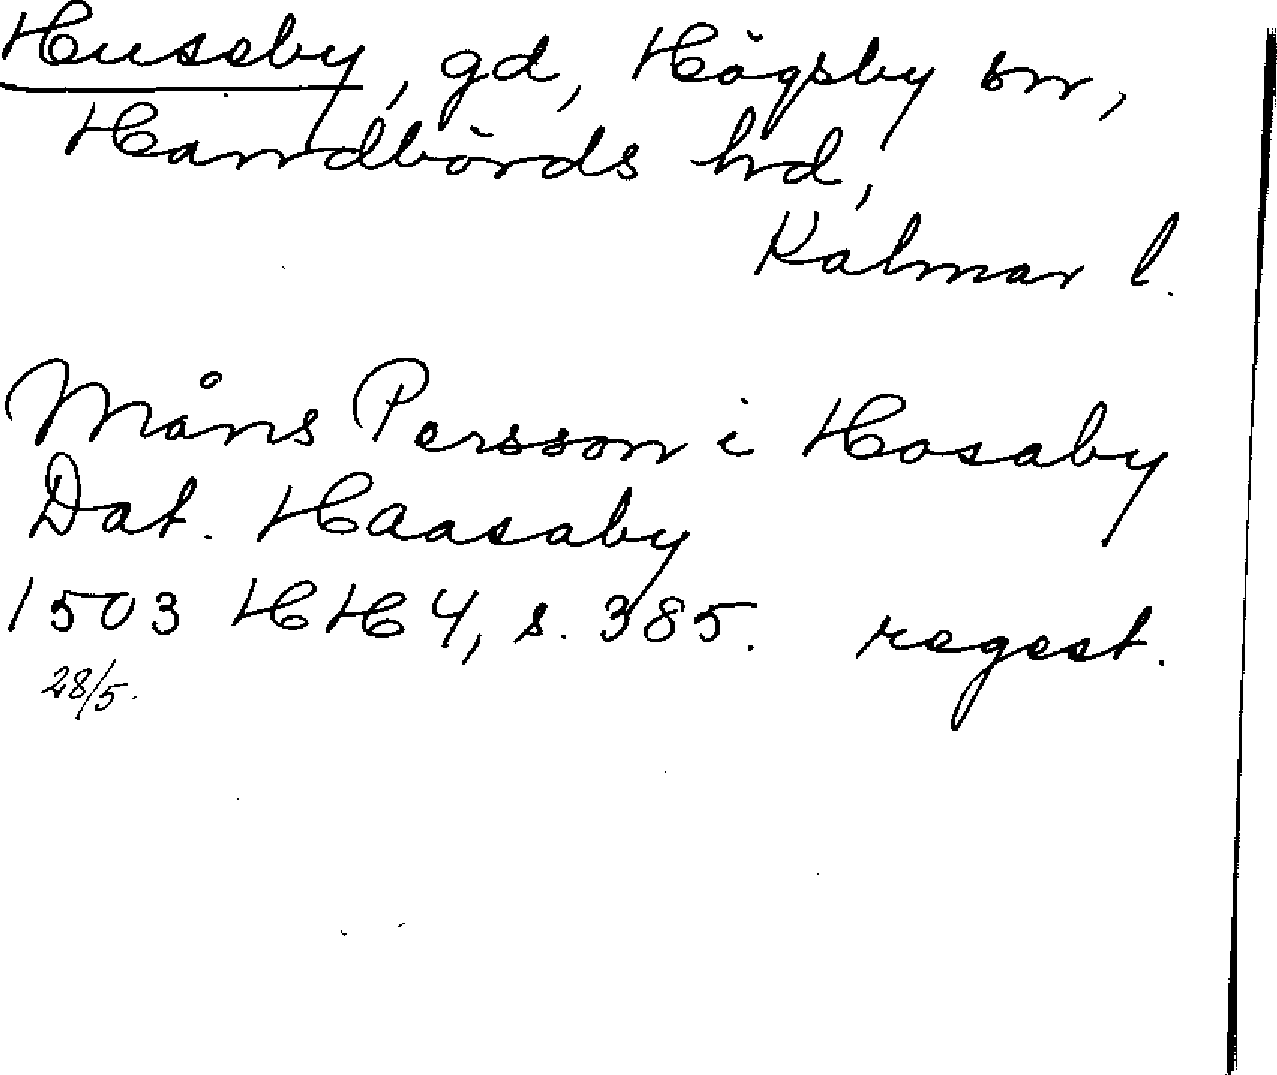 Huseby, gd, Högsby sn,
Handbörds hd,
Kalmar l.
Måns Persson i Hosaby
Dat. Haasaby
1503 HH 4, s. 385. regest.
28/5.